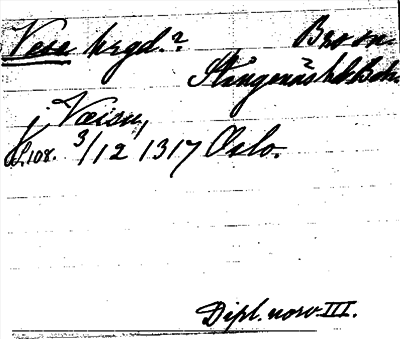 Vese hrgd.? Bro sn.
Stångenäs hd. Boh.
i Væisu,
S. 108. 3/12 1317 Oslo.
Dipl. norv. III.